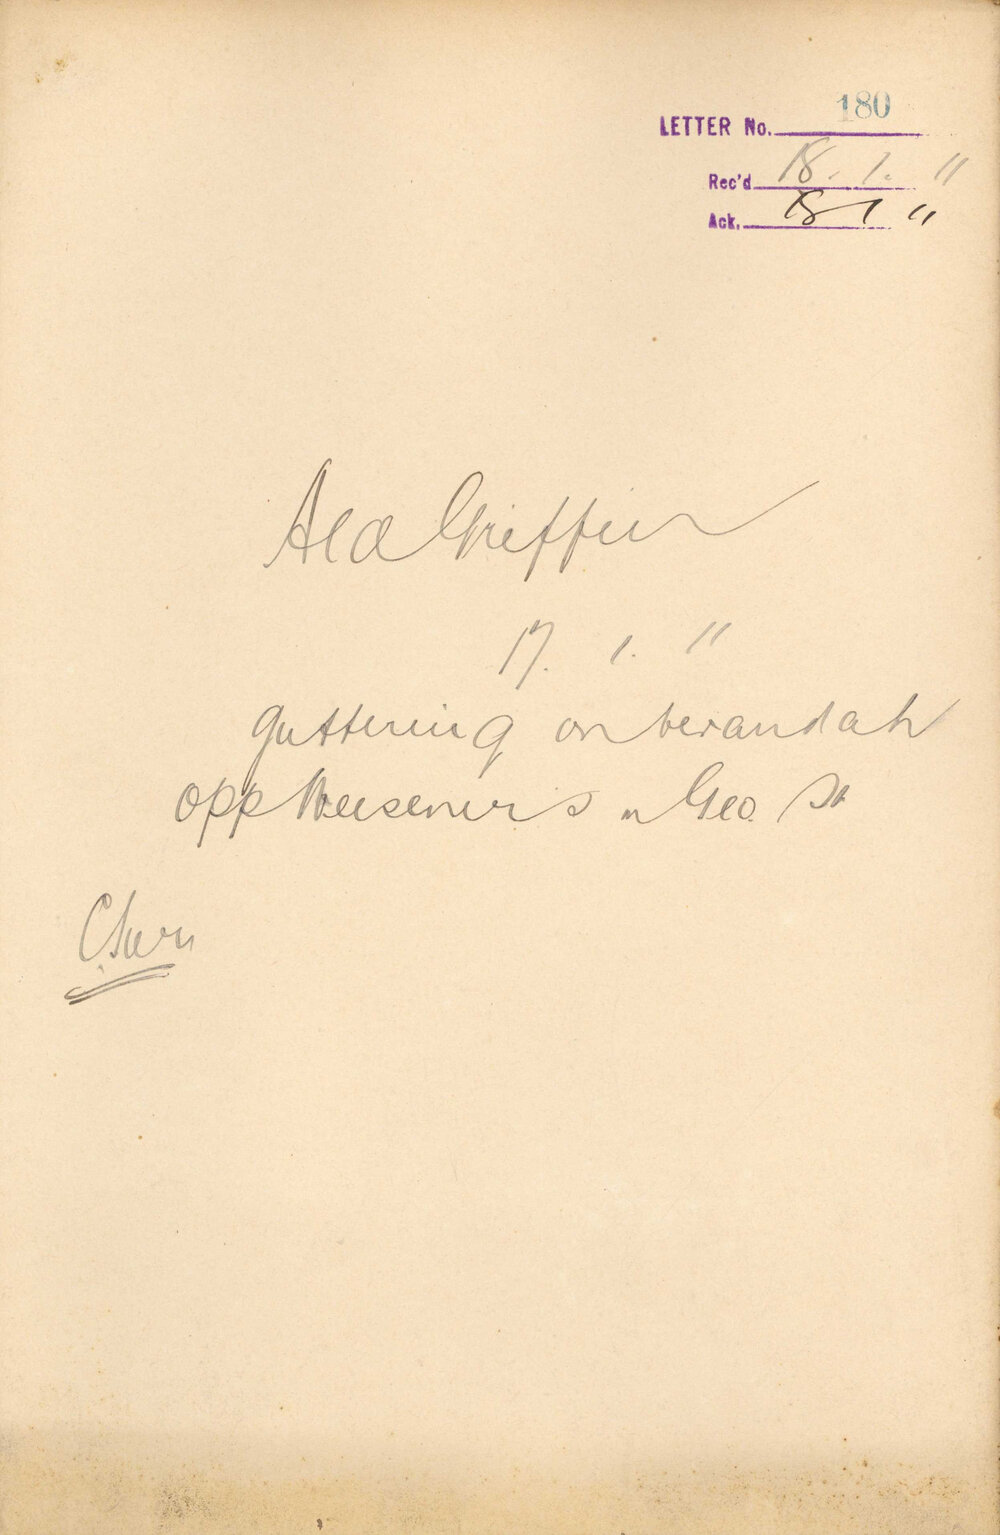 LETTER No. 180
Rec'd 18. 1. 11
Ack. 18 1 11
Ald Griffin
17. 1. 11
guttering on verandah
opp Weisener's in Geo. St